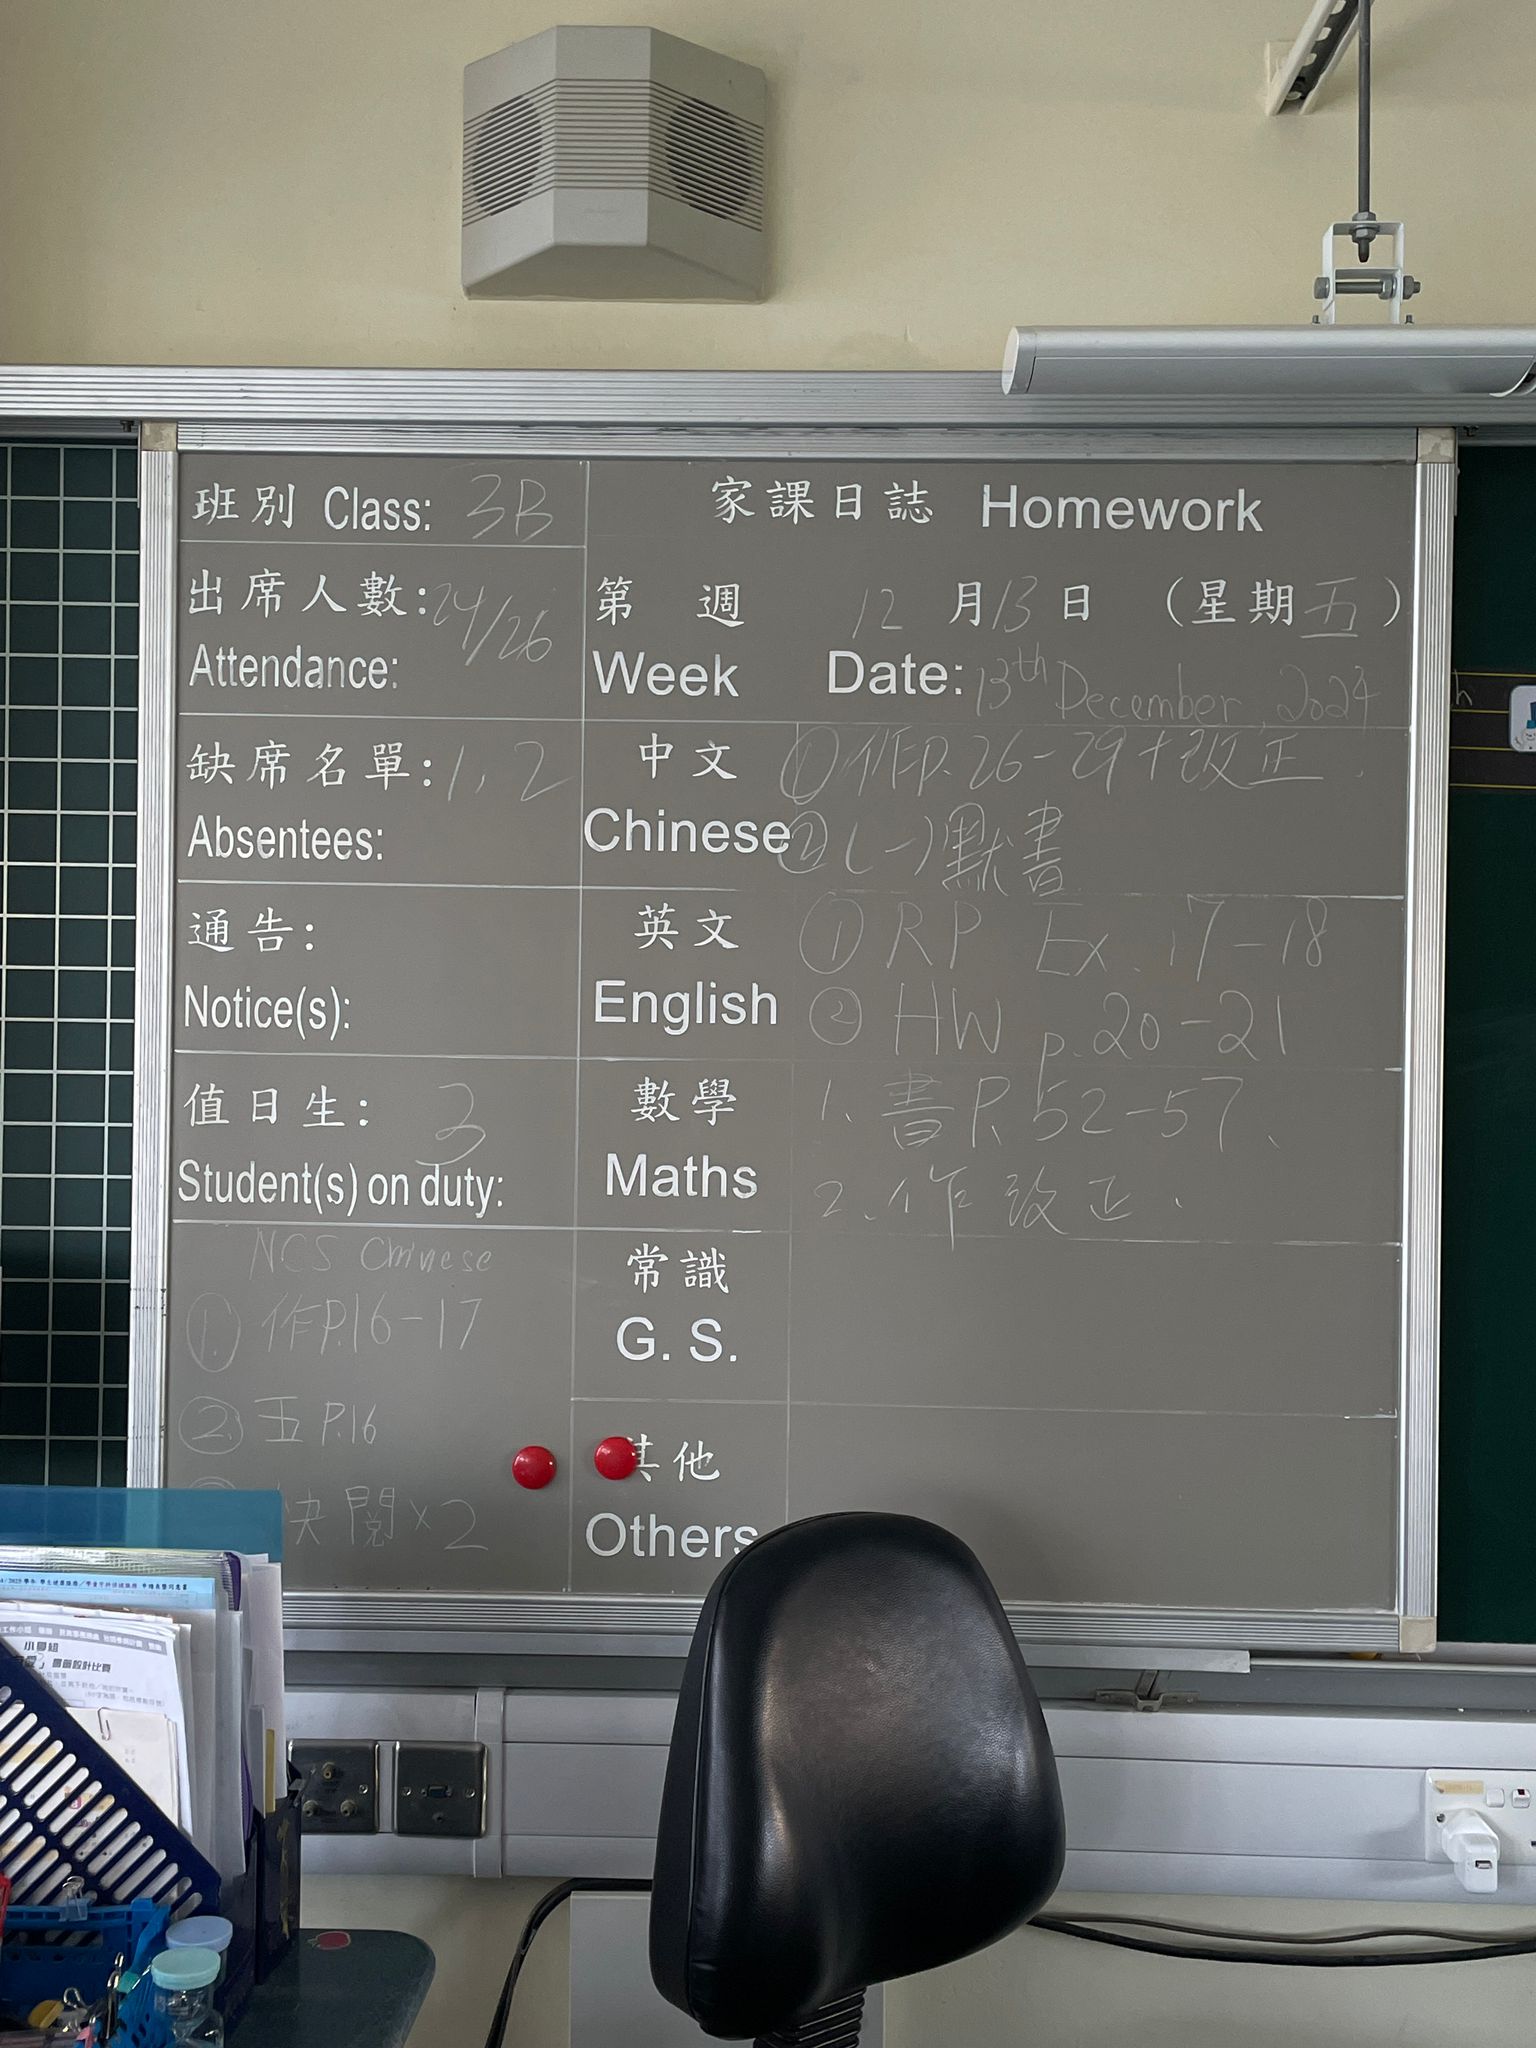 班別 Class: 3B
出席人數: 24/26
Attendance:
缺席名單: 1, 2
Absentees:
通告:
Notice(s):
值日生: 3
Student(s) on duty:
NCS Chinese
①. 作P.16-17
②. 五 P.16
快閱 × 2
家課日誌 Homework
第 週 12 月 13 日 (星期五)
Week Date: 13th December, 2024
中文 ① 作P. 26-29 + 改正.
Chinese ② (一) 默書
英文 ① RP Ex. 17-18
English ② HW p. 20-21
數學 1. 書P. 52-57.
Maths 2. 作 改正.
常識
G. S.
其他
Others
小學組
書面設計比賽